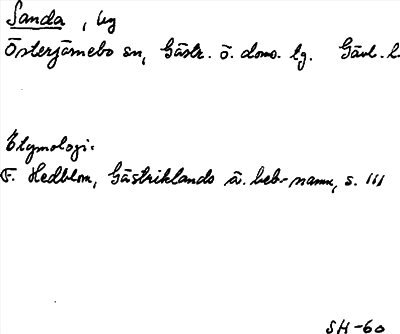 Sanda, by
Österfärnebo sn, Gästr. ö. doms. lg. Gävl. l.
Etymologi:
F. Hedblom, Gästriklands ä. beb-namn, s. 111
SH-60